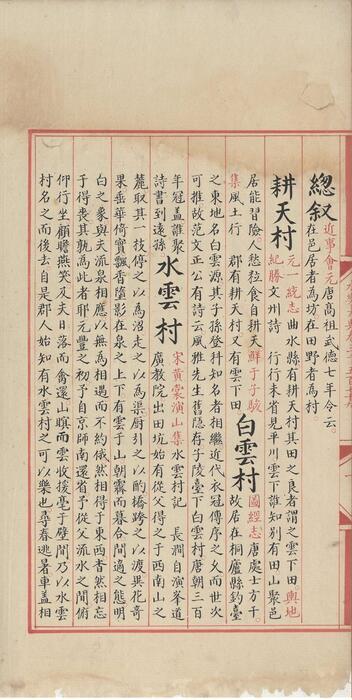 總叙 近事會元唐高祖武德七年令云
在邑居者為坊在田野者為村
耕天村 元一統志 曲水縣有耕天村其田之良者謂之雲下田 輿地
紀勝 文州詩 行行未省見平川雲下誰知別有田山聚邑
居能習險人憗粒食自耕天 鮮于子駿
集風土行 郡有耕天村又有雲下田
白雲村 國經志 唐處士方干
故居在桐廬縣釣臺
之東地名白雲源其子孫登科知名者相繼近代衣冠傳序之久而世次
可推故范文正公有詩云風雅先生舊隱存子陵臺下白雲村唐朝三百
年冠蓋誰聚
詩書到遠孫
水雲村 宋黄裳演山集 水雲村記 長澗自演峯道
廣教院出田坑始有從父得之于西南山之
麓取其一枝停之以為沼走之以為渠厨引之以酌橋跨之以渡異花奇
果垂華倚實飄香墮影在泉之上下有雲于山朝霏而暮合間適之態明
白之象與夫流泉相應以無為相遇而不約俄然相得于東西者然相忘
于得喪其孰為此者耶元豐之初予自京師南還省予從父流水之間俯
仰行坐顧瞻燕笑及夫日落而禽還山暝而雲收援毫于壁間乃以水雲
村名之而後去自是郡人始知有水雲村之可以樂也尋春逃暑車蓋相